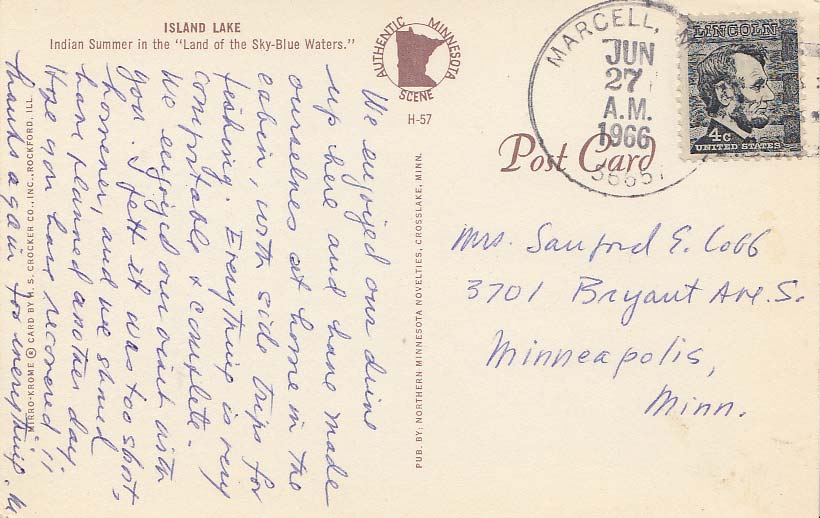 ISLAND LAKE
Indian Summer in the "Land of the Sky-Blue Waters."
AUTHENTIC MINNESOTA
SCENE
H-57
We enjoyed our drive
up here and have made
ourselves at home in the
cabin, with side trips for
fishing. Everything is very
comfortable & complete.
We enjoyed our visit with
you. I felt it was too short,
however, and we should
have planned another day.
Hope you have recovered!!
Thanks again for everything.
MIRRO-KROME ® CARD BY H. S. CROCKER CO., INC., ROCKFORD, ILL.
PUB. BY: NORTHERN MINNESOTA NOVELTIES, CROSSLAKE, MINN.
Post Card
MARCELL,
JUN
27
A.M.
1966
LINCOLN
4c
UNITED STATES
Mrs. Sanford E. Cobb
3701 Bryant Ave. S.
Minneapolis,
Minn.